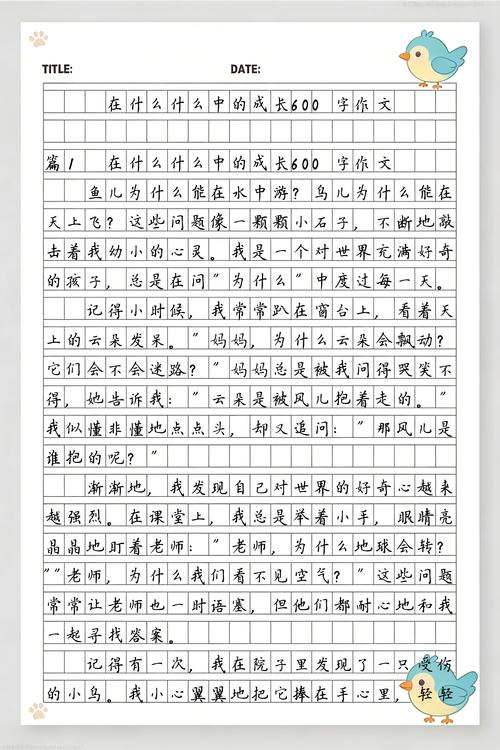 TITLE: DATE:
在什么什么中的成长600 字作文
篇1 在什么什么中的成长600 字作文
鱼儿为什么能在水中游？鸟儿为什么能在
天上飞？这些问题像一颗颗小石子，不断地敲
击着我幼小的心灵。我是一个对世界充满好奇
的孩子，总是在问"为什么"中度过每一天。
记得小时候，我常常趴在窗台上，看着天
上的云朵发呆。"妈妈，为什么云朵会飘动？
它们会不会迷路？"妈妈总是被我问得哭笑不
得，她告诉我："云朵是被风儿抱着走的。"
我似懂非懂地点点头，却又追问："那风儿是
谁抱的呢？"
渐渐地，我发现自己对世界的好奇心越来
越强烈。在课堂上，我总是举着小手，眼睛亮
晶晶地盯着老师："老师，为什么地球会转？
""老师，为什么我们看不见空气？"这些问题
常常让老师也一时语塞，但他们都耐心地和我
一起寻找答案。
记得有一次，我在院子里发现了一只受伤
的小鸟。我小心翼翼地把它捧在手心里，轻轻